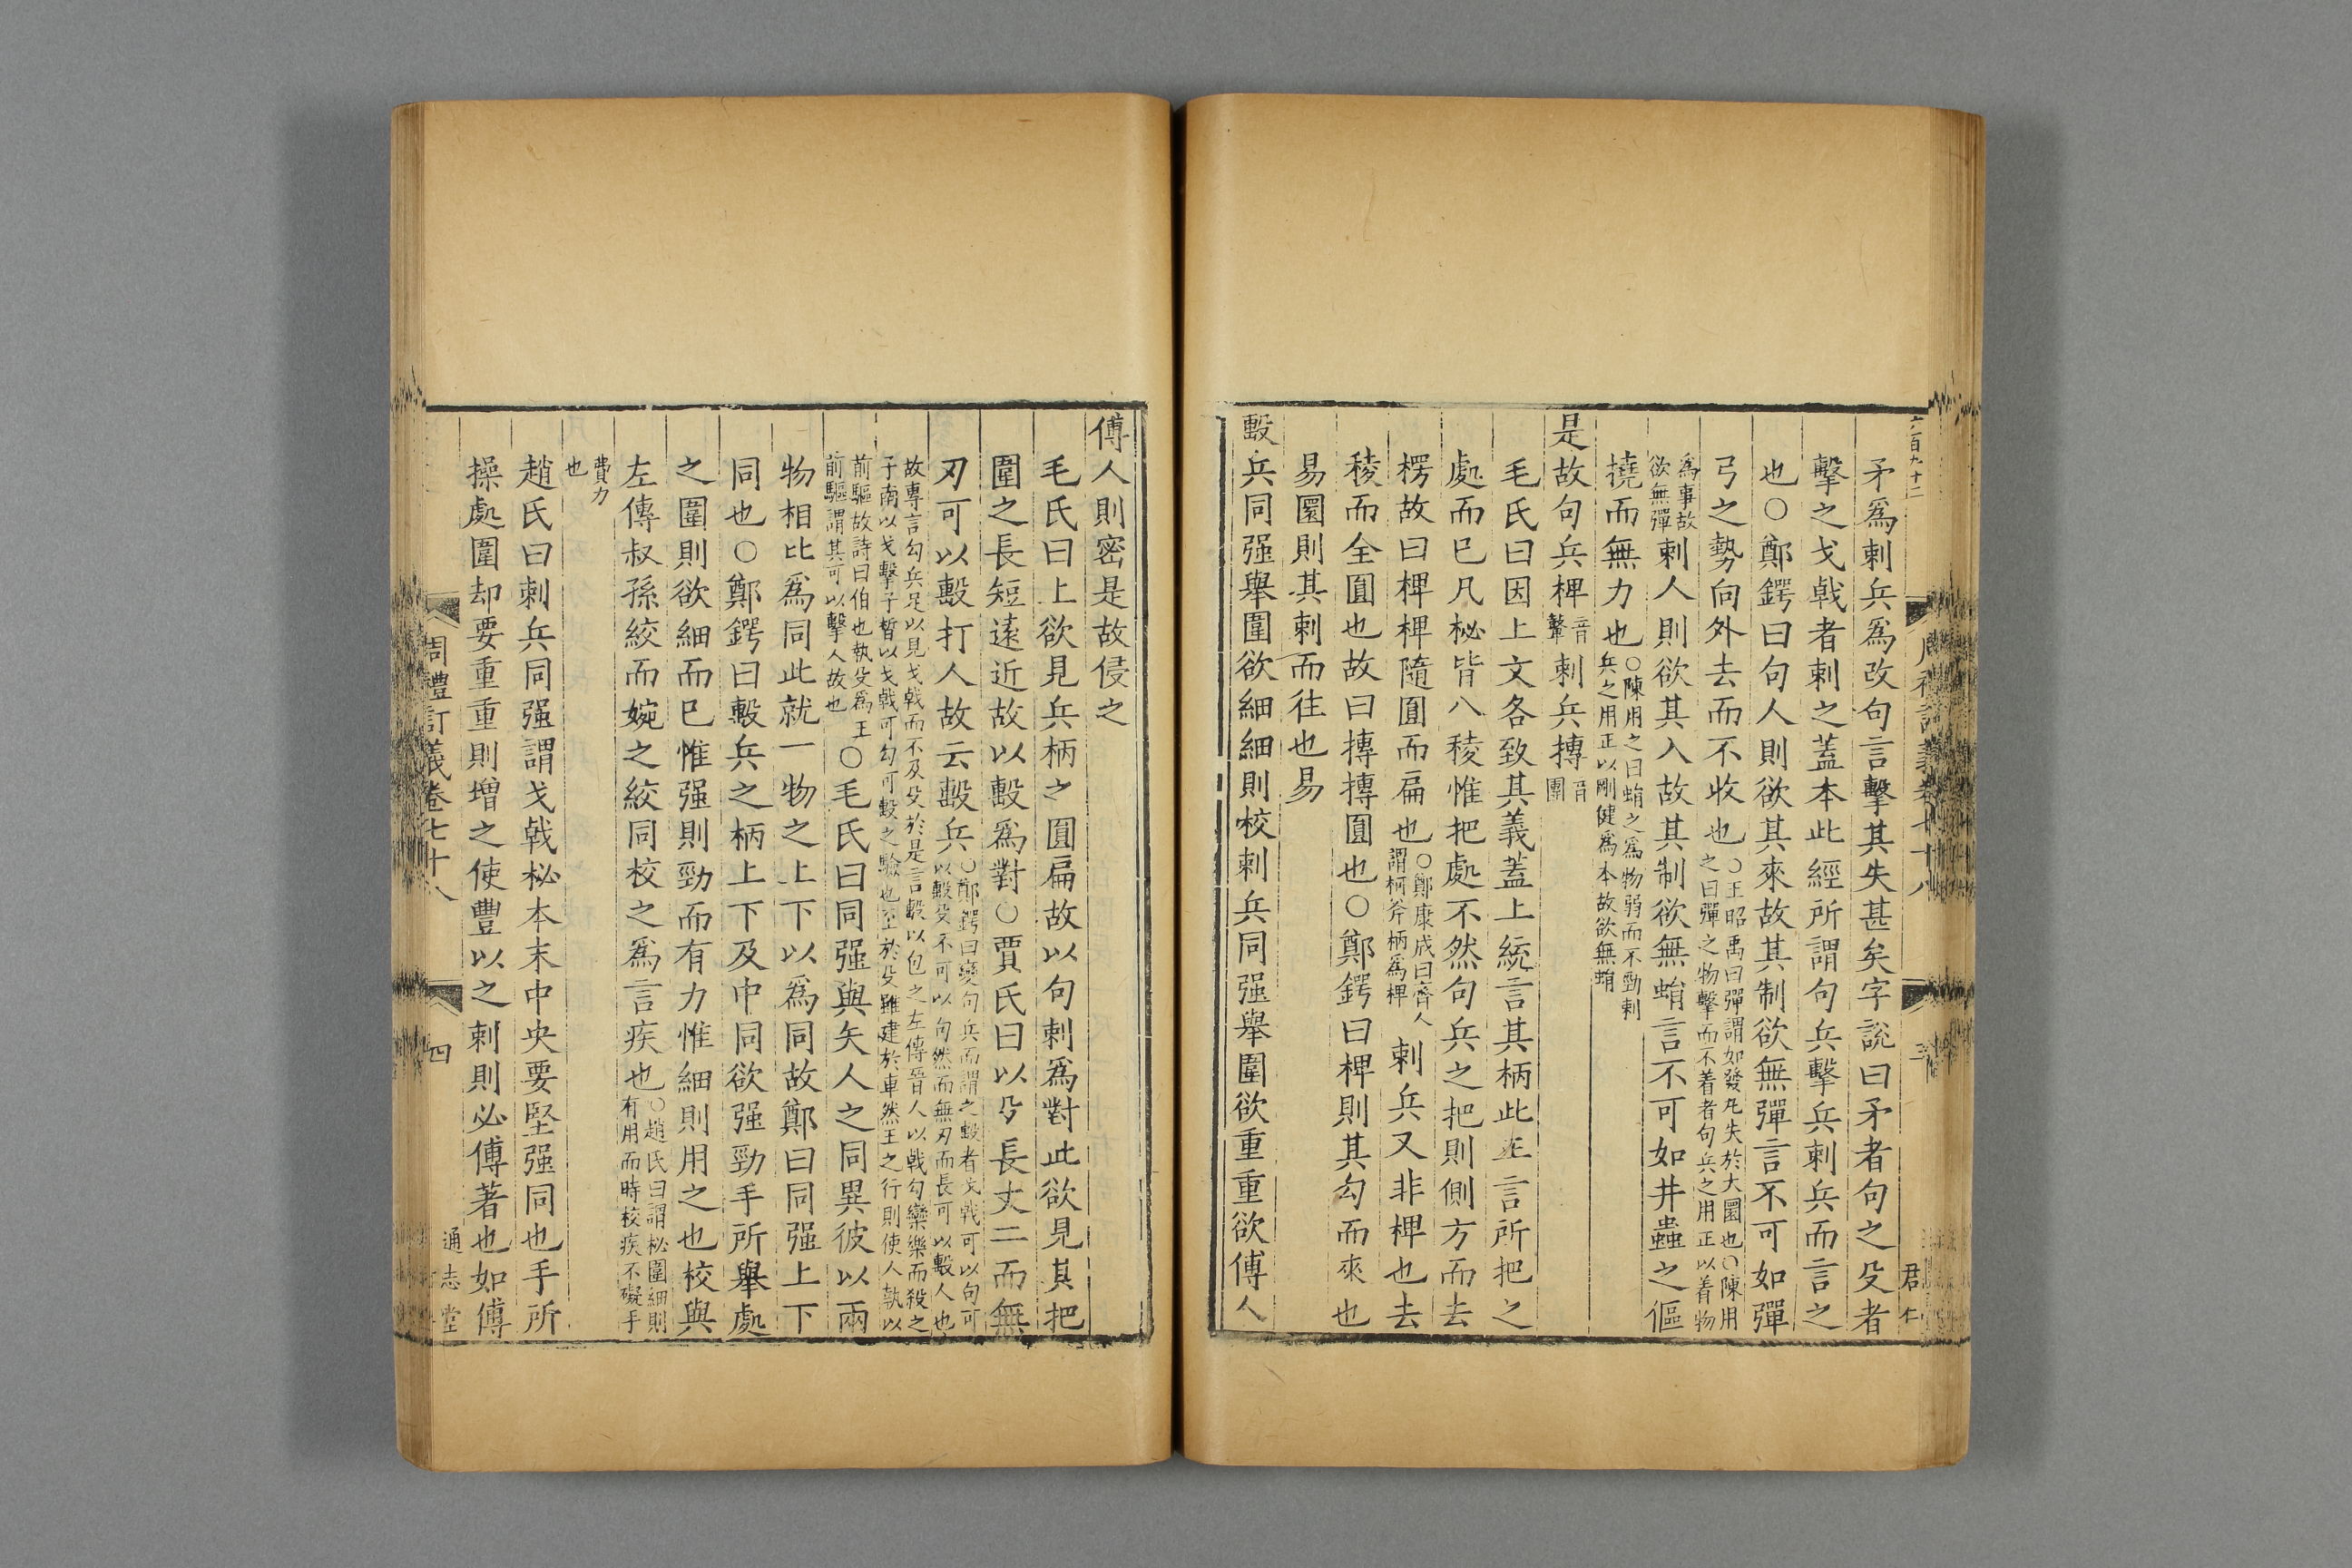 六百九十二
君仁
矛爲刺兵爲改句言擊其失甚矣字說曰矛者句之殳者
擊之戈戟者刺之蓋本此經所謂句兵擊兵刺兵而言之
也○鄭鍔曰句人則欲其來故其制欲無彈言不可如彈
弓之勢向外去而不收也○王昭禹曰彈謂如發丸失於大圜也○陳用
之曰彈之物擊而不着者句兵之用正以着物
爲事故
欲無彈刺人則欲其入故其制欲無蜎言不可如井蟲之傴
撓而無力也○陳用之曰蜎之爲物弱而不勁刺
兵之用正以剛健爲本故欲無蜎
是故句兵椑音鼙刺兵摶音團
毛氏曰因上文各致其義蓋上統言其柄此正言所把之
處而已凡柲皆八稜惟把處不然句兵之把則側方而去
楞故曰椑椑隨圓而扁也○鄭康成曰齊人
謂柯斧柄爲椑刺兵又非椑也去
稜而全圓也故曰摶摶圓也○鄭鍔曰椑則其勾而來也
易圜則其刺而往也易
毄兵同强舉圍欲細細則校刺兵同强舉圍欲重重欲傅人
傅人則密是故侵之
毛氏曰上欲見兵柄之圓扁故以句刺爲對此欲見其把
圍之長短遠近故以毄爲對○賈氏曰以殳長丈二而無
刃可以毄打人故云毄兵○鄭鍔曰變句兵而謂之毄者戈戟可以句可
以毄殳不可以句然而無刃而長可以毄人也
故專言勾兵足以見戈戟而不及殳於是言毄以包之左傳晉人以戟勾欒樂而殺之
子南以戈擊子晳以戈戟可勾可毄之驗也至於殳雖建於車然王之行則使人執以
前驅故詩曰伯也執殳爲王
前驅謂其可以擊人故也○毛氏曰同强與矢人之同異彼以兩
物相比爲同此就一物之上下以爲同故鄭曰同强上下
同也○鄭鍔曰毄兵之柄上下及中同欲强勁手所舉處
之圍則欲細而已惟强則勁而有力惟細則用之也校與
左傳叔孫絞而婉之絞同校之爲言疾也○趙氏曰謂柲圍細則
有用而時校疾不礙手
費力
也
趙氏曰刺兵同强謂戈戟柲本末中央要堅强同也手所
操處圍却要重重則增之使豐以之刺則必傅著也如傅
周禮訂義卷七十八
四
通志堂